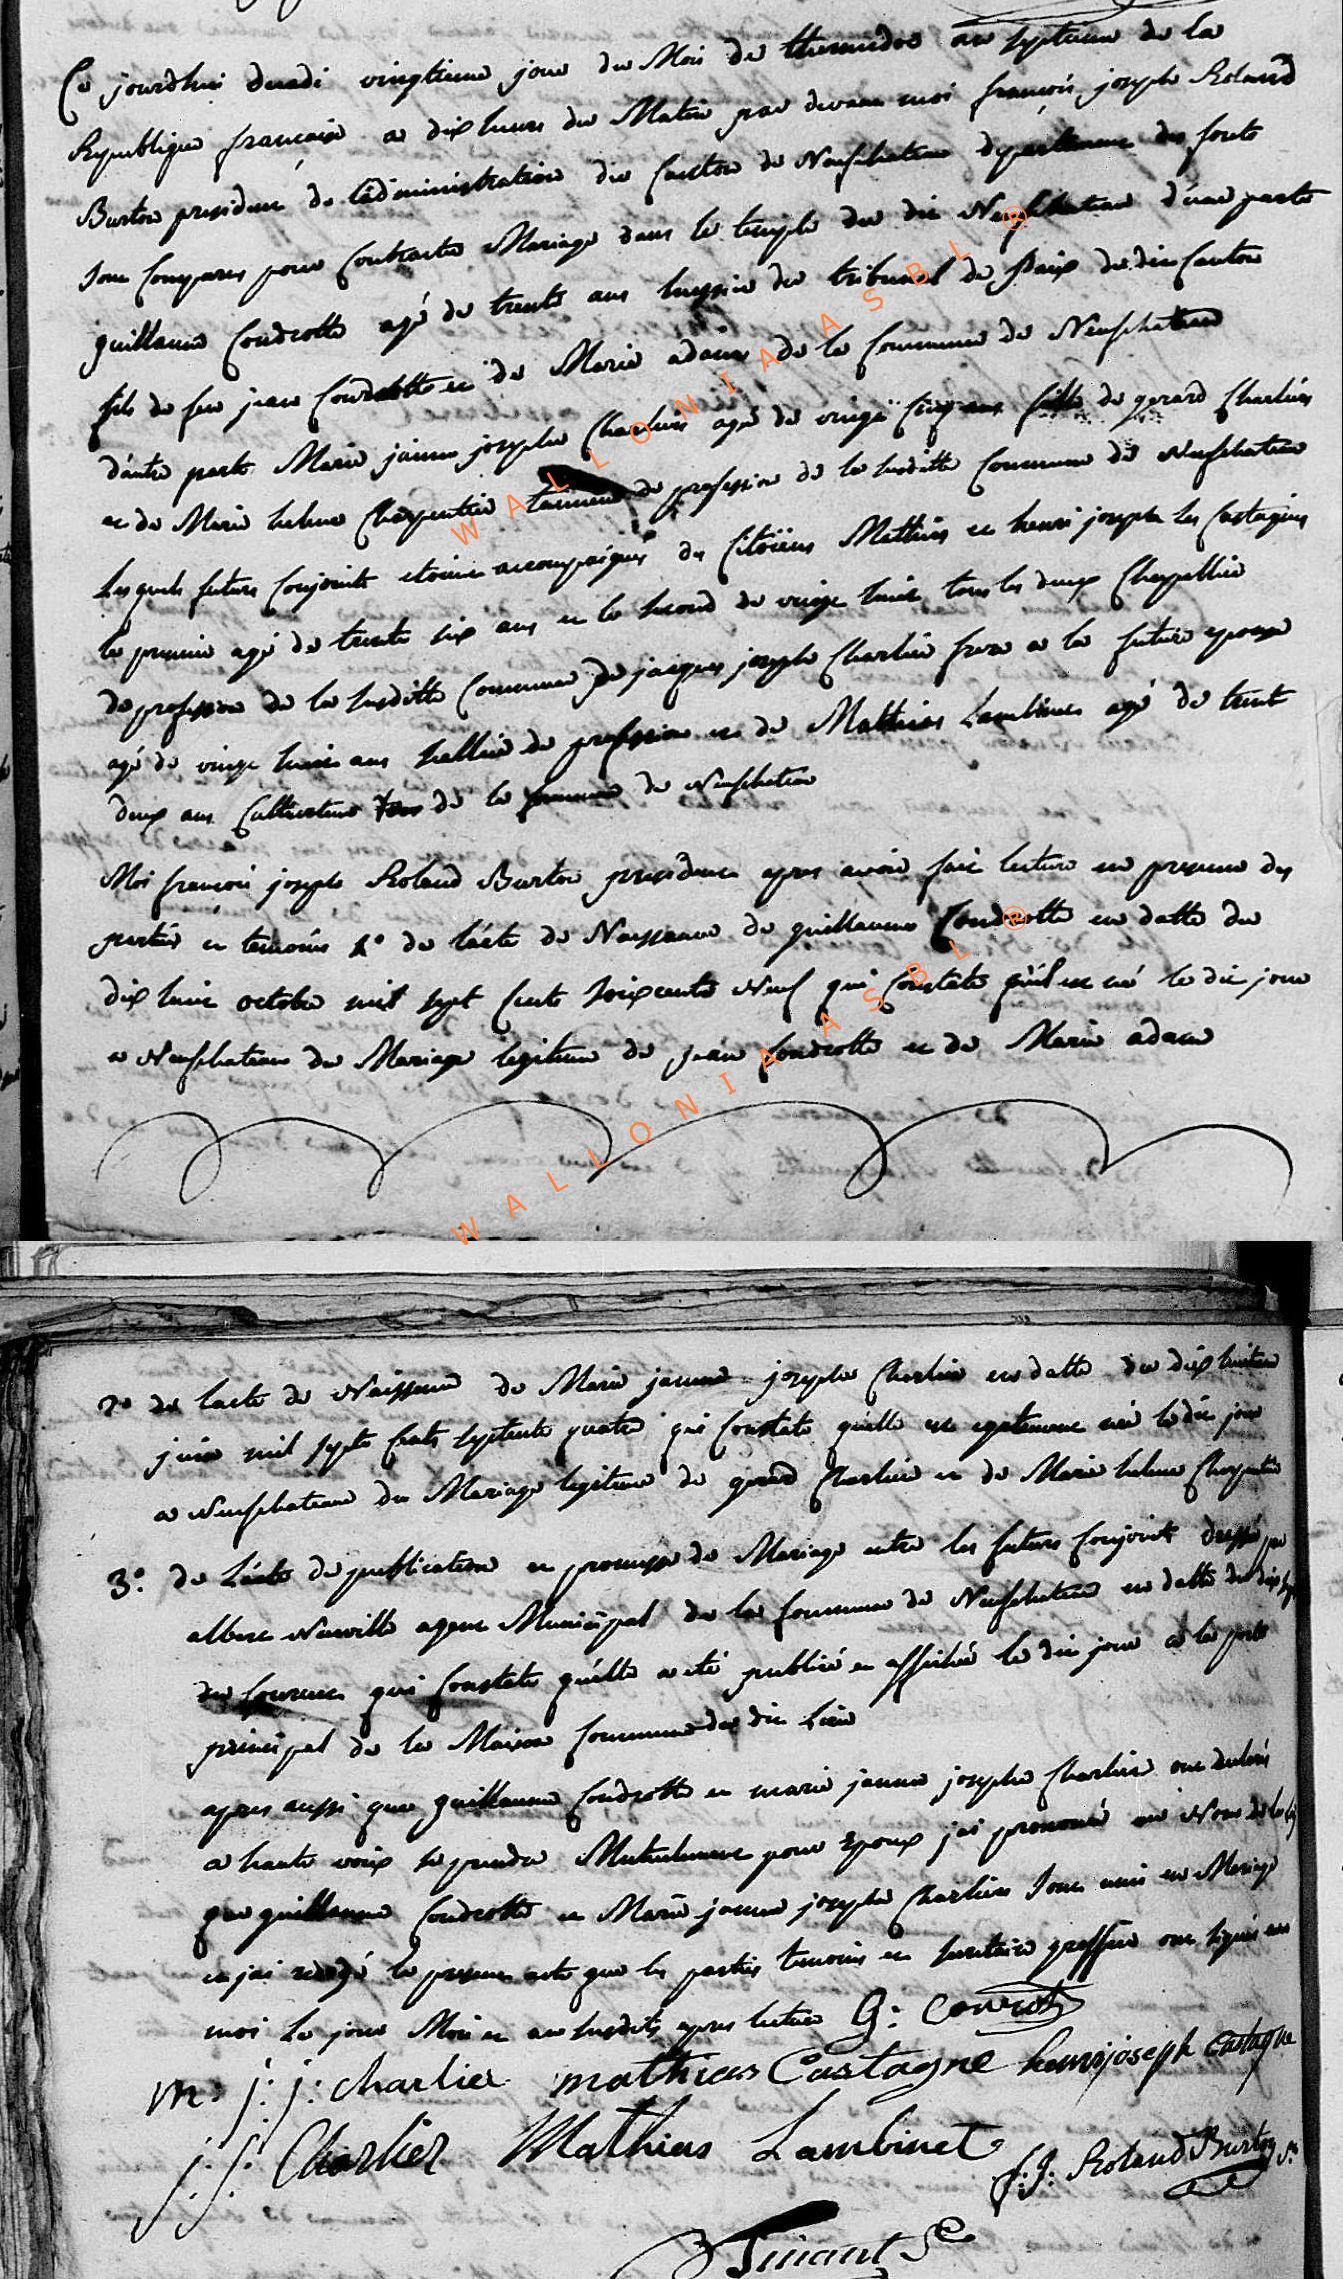 Ce jourdhui decadi vingtieme jour du Mois de thermidor an septieme de la
Republique francaise a dix heures du Matin par devant moi francois joseph Roland
Burton president de l'administration du Canton de Neufchateau departement des forets
sont Comparus pour Contracter Mariage dans le temple du dit Neufchateau d'une parte
guillaume Condrotte agé de trente ans huissier du tribunal de Paix du dit Canton
fils de feu jean Condrotte et de Marie adam de la Commune de Neufchateau
d'autre parte Marie jeanne josephe Charlier agé de vingt Cinq ans fille de gerard Charlier
et de Marie helene Charpentier de profession de la susditte Commune de Neufchateau
lesquels futurs Conjoints etoient accompagnés des Citoïens Mathias et henri joseph les Castagnes
le premier agé de trente six ans et le second de vingt huit tous les deux Chapellier
de profession de la susditte Commune de jacques joseph Charlier frere a la future epouse
agé de vingt huit ans sellier de profession et de Matthias Lambinet agé de trent
deux ans Cultivateur de la Commune de Neufchateau
Moi francois joseph Roland Burton president apres avoir fait lecture en presence des
parties et temoins 1° de l'acte de Naissance de guillaume Condrotte en datte du
dix huit octobre mil sept Cents soixcente Neuf qui Constate qu'il est né le dit jour
a Neufchateau du Mariage legitime de jean Condrotte et de Marie adam
2° de lacte de Naissance de Marie jeanne josephe Charlier en datte du dix huitieme
juin mil septs Cents septente quatre qui Constate quelle est egalement née le dit jour
a Neufchateau du Mariage legitime de gerard Charlier et de Marie helene Charpentier
3° de L'acte de publication et promesse de Mariage entre les futurs Conjoints dressé par
albert Neuville agent Municipal de la Commune de Neufchateau en datte du dix
du Courent qui Constate qu'elle a eté publié et affichée le dit jour a la porte
principal de la Maison Commune du dit Lieu
apres aussi que guillaume Condrotte et marie jeanne josephe Charlier ont declaré
a haute voix se prendre Mutuellement pour Epoux j'ai prononcé au Nom de la loy
que guillaume Condrotte et Marie jeanne josephe Charlier sont unis en Mariage
et j'ai redigé le present acte que les parties temoins et secretaire greffier ont signés avec
moi le jour Mois et an susdits apres lecture G: Conrot
m: j: j: charlier mathias Castagne henri joseph castagne
j: j: Charlier Mathias Lambinet f: J: Roland Burton
Tinant